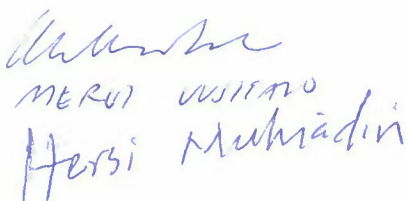 MERVI UUSITALO
Hersi Muhiadin